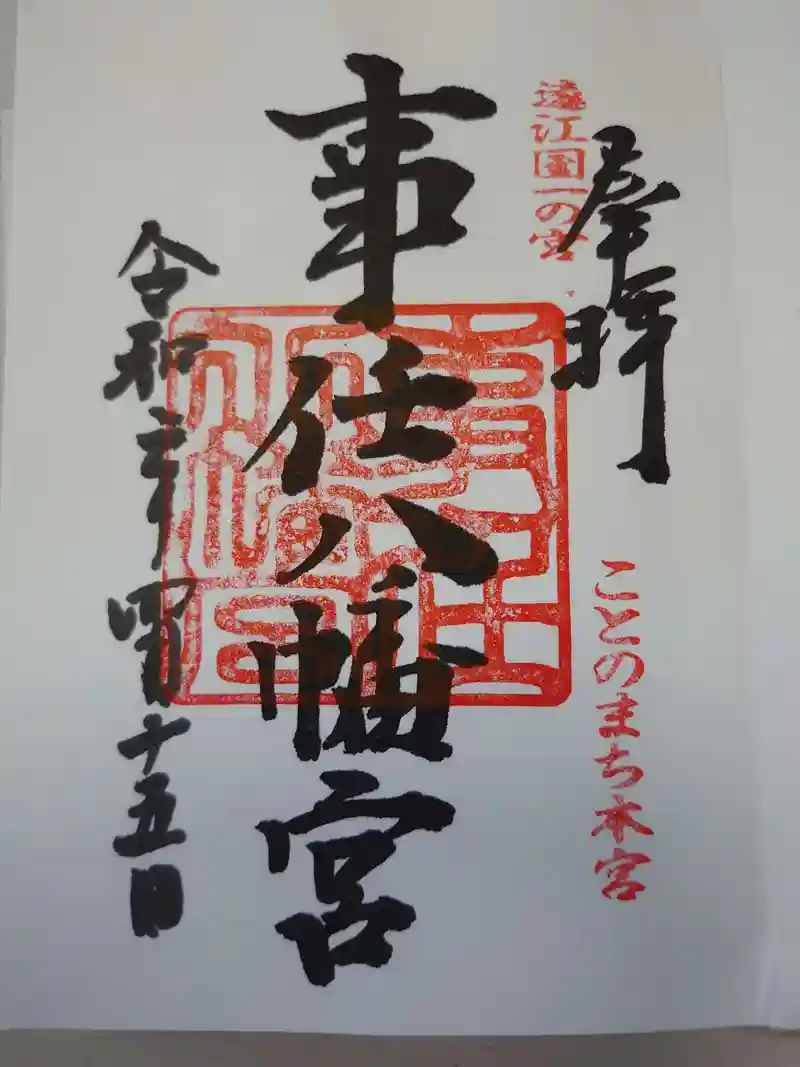 奉拝
遠江国一の宮
ことのまち本宮
事任八幡宮
令和 年四月十五日